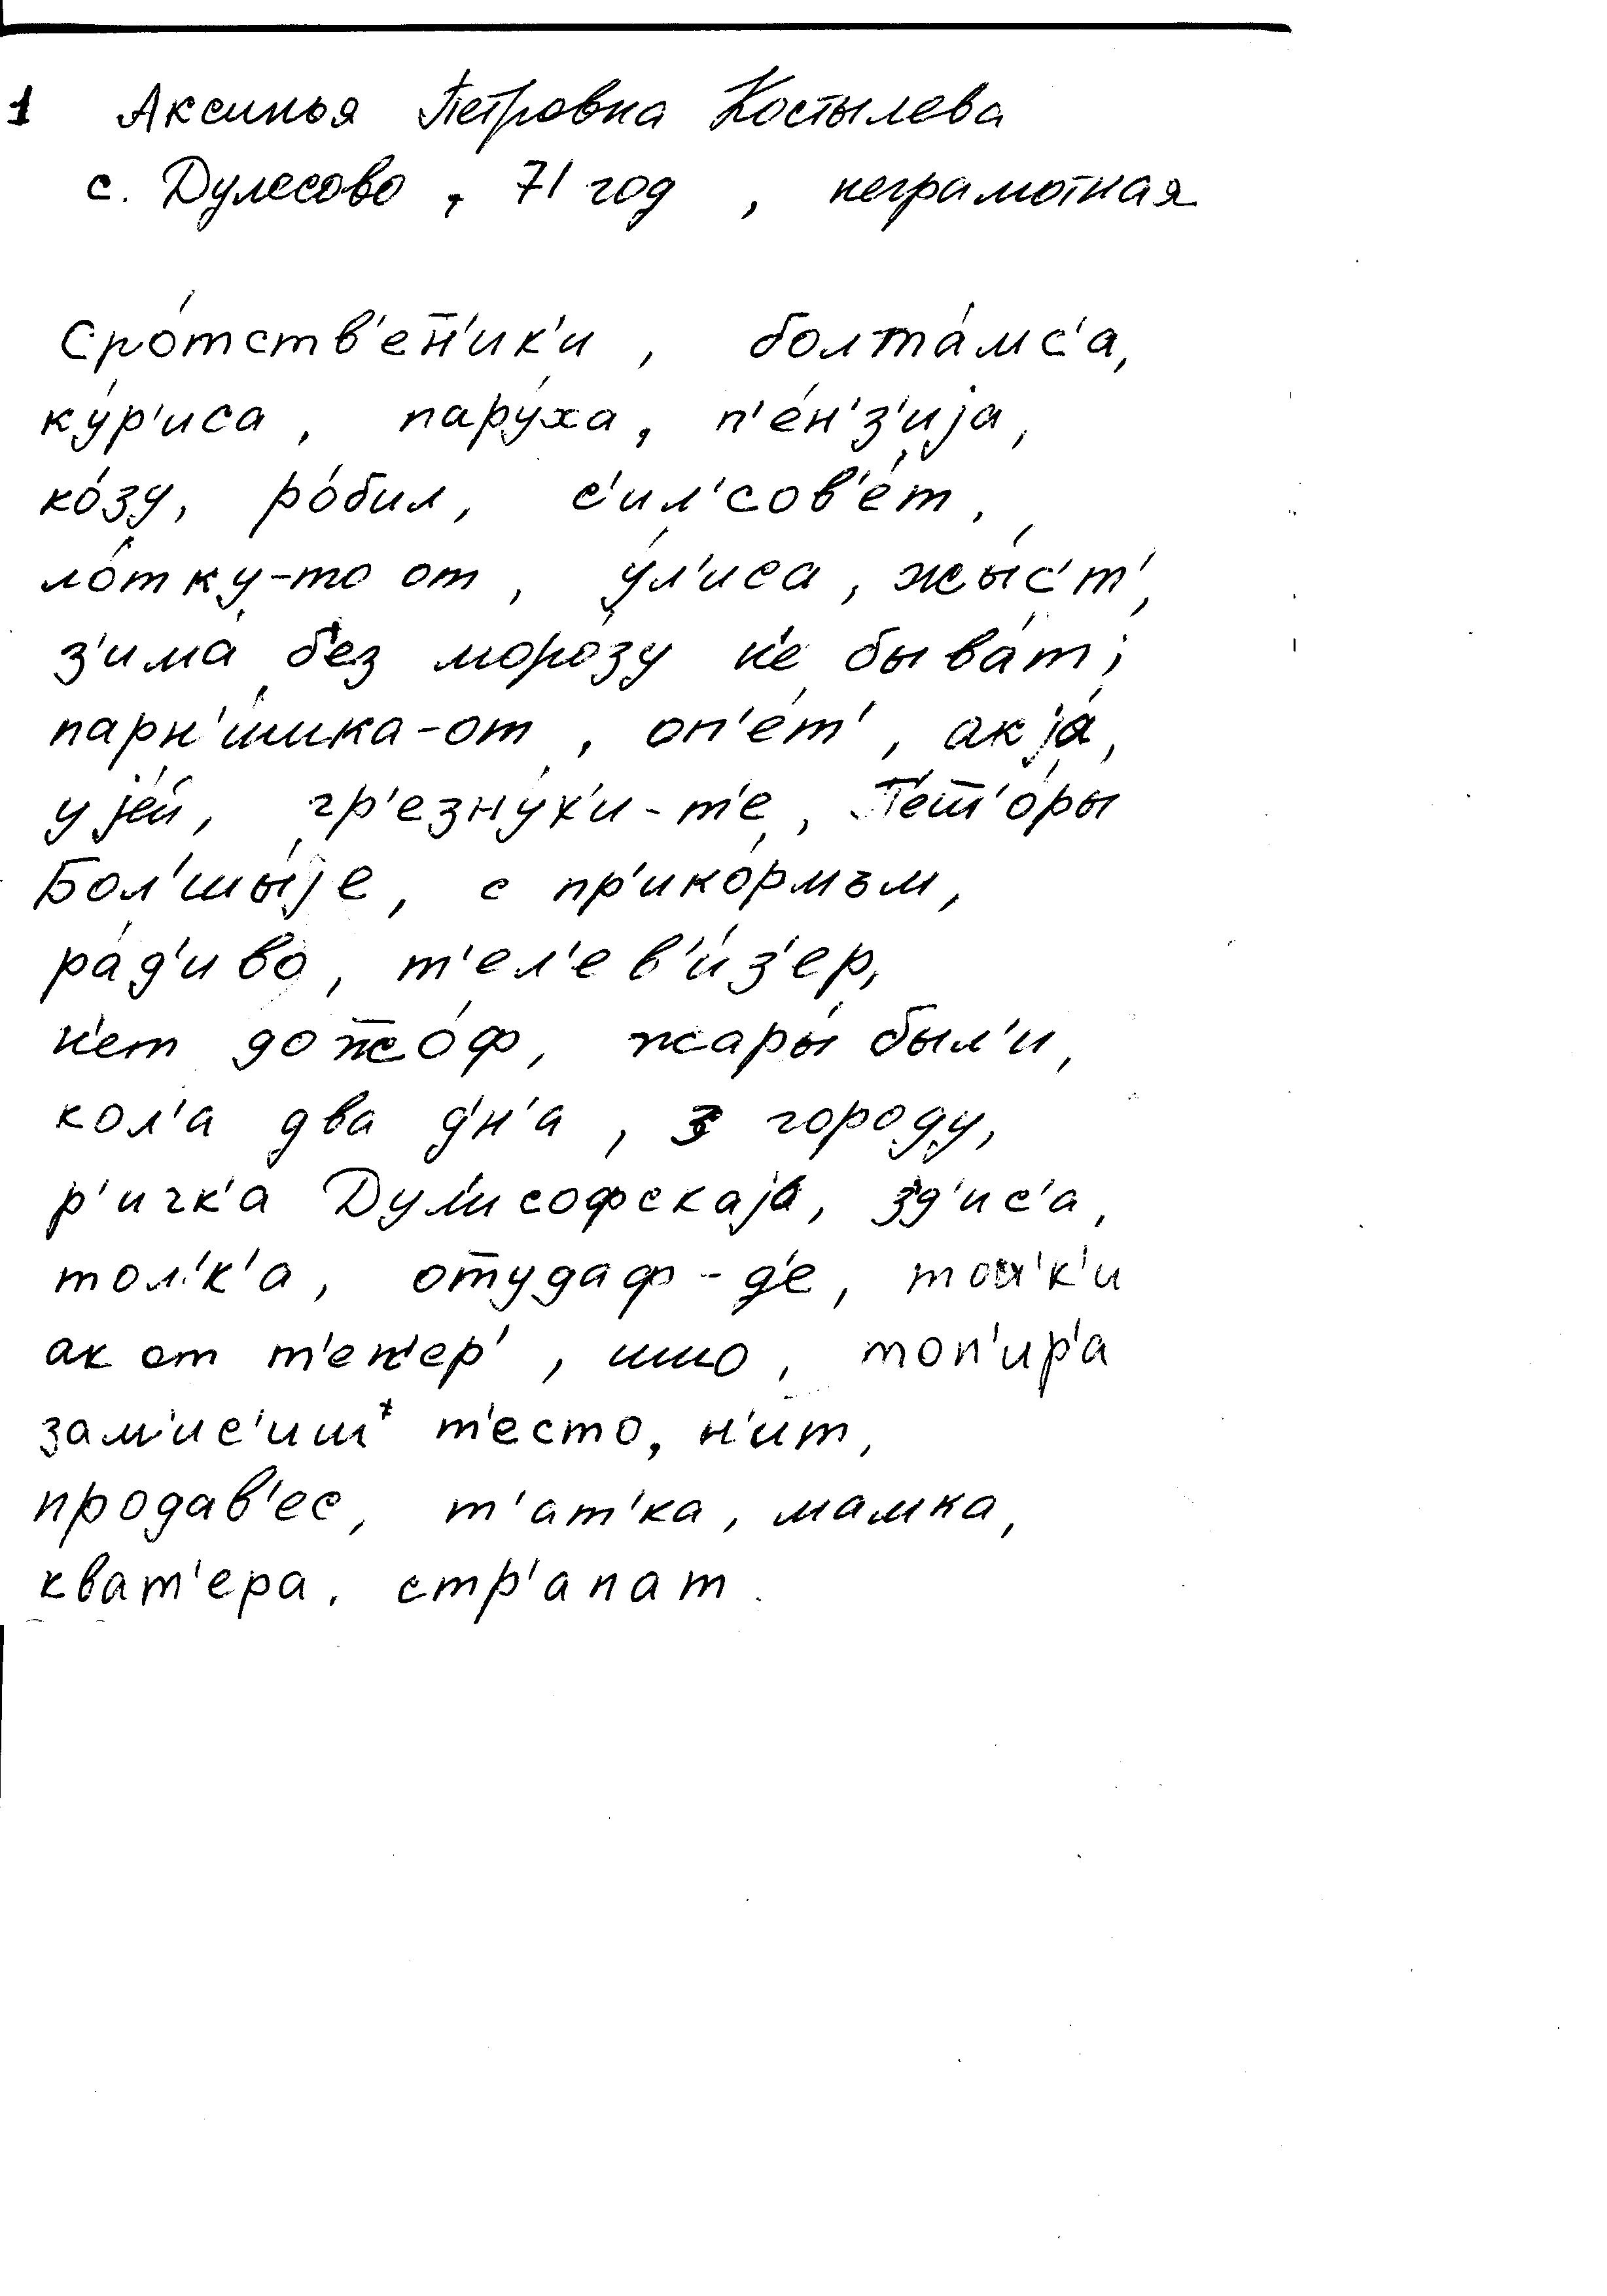 1 Аксинья Петровна Костылева
с. Дулесово, 71 год, неграмотная
Сро́тств'ен̄'ик'и, болта́мс'а,
ку́р'иса, пару́ха, п'е́н'з'ија,
ко́зу, ро́бил, с'ил'сов'е́т,
ло́тку-то от, у́л'иса, жы́с'т',
з'има́ б'ез моро́зу н'е быва́т;
парн'и́шика-от, оп'е́т', акја́,
ује́й, гр'езну́х'и-т'е, П'ет̄'о́ры
Бол'шы́је, с пр'ико́рмъм,
ра́д'иво, т'ел'ев'и́з'ер,
н'ет дож̄о́ф, жары́ был'и,
кол'а два дн'а, з городу,
р'ичк'а Дул'исофскаја, зд'ис'а,
тол'к'а, от̄удаф-д'е, тол'к'и
ак от т'еп'ер', шшо, топ'ир'а
зам'ис'иш* т'есто, н'ит,
продав'ес, т'ат'ка, мамка,
кват'ера, стр'апат.